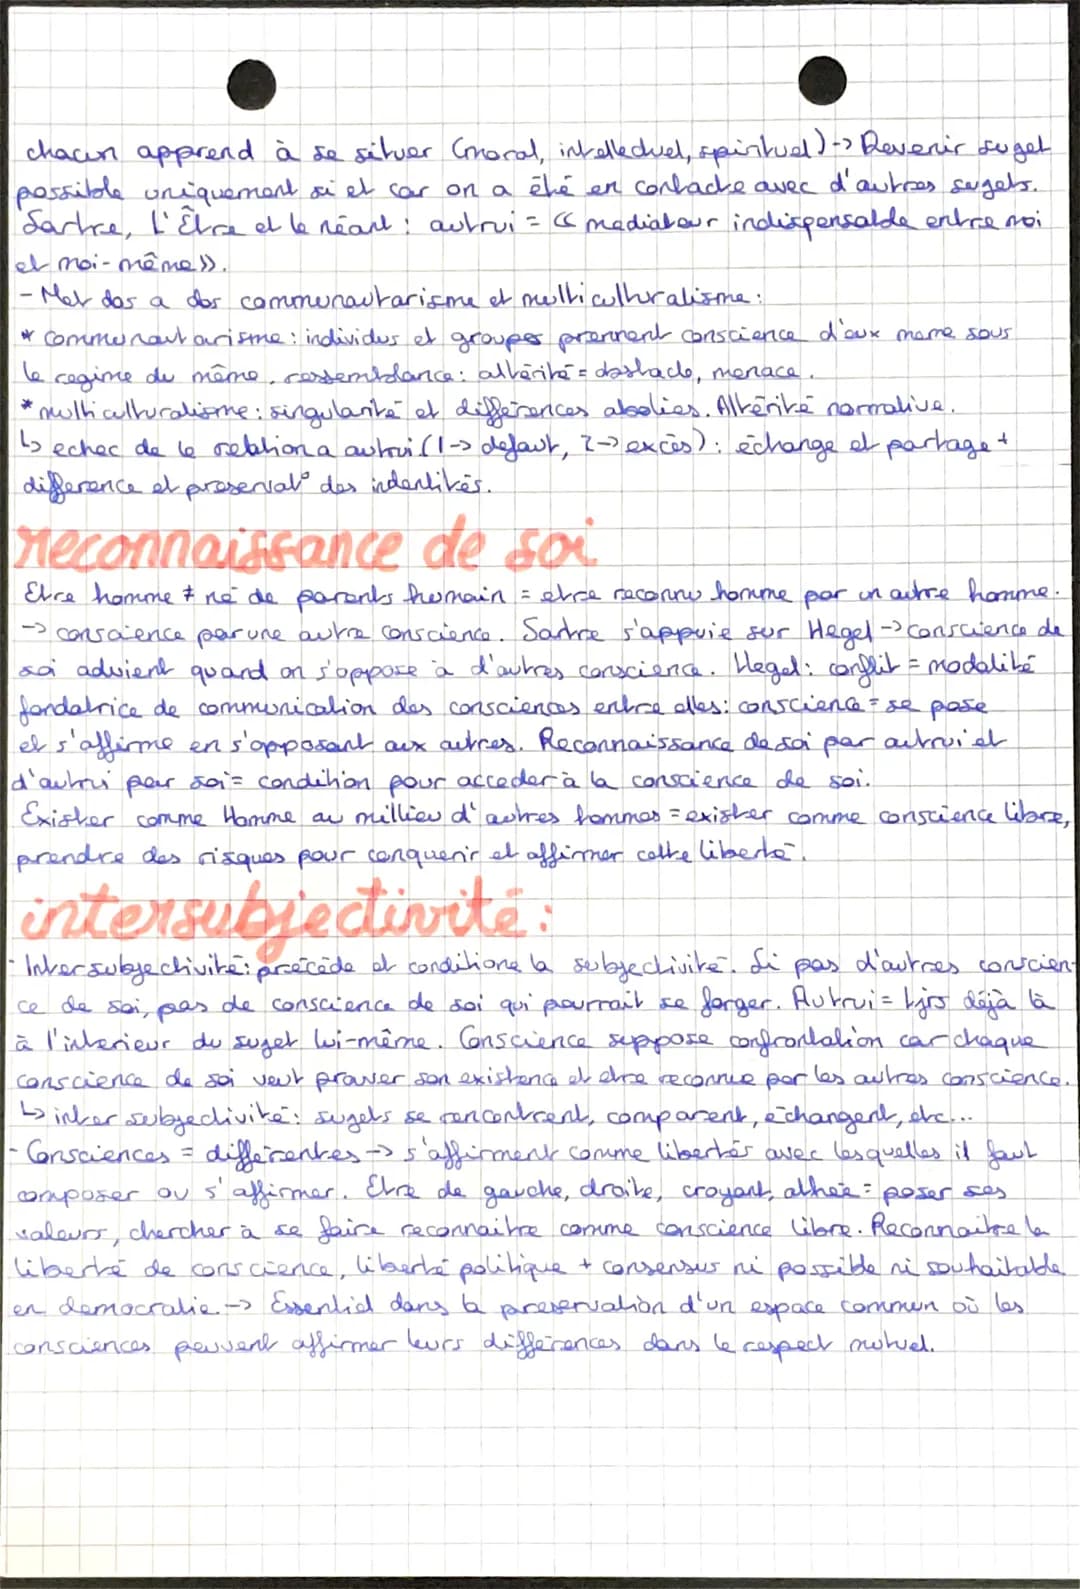 chacun apprend à se situer (moral, intellectuel, spirituel) -> Devenir suget
possible uniquement si et car on a été en contacte avec d'autres sugets.
Sartre, L'Être et le néant : autrui = « mediateur indispensable entre moi
et moi-même ».
- Met dos a dos communautarisme et multiculturalisme :
* communautarisme : individus et groupes prennent conscience d'eux meme sous
le regime du même, ressemblance : altérité = obstacle, menace.
* multiculturalisme : singularité et différences abolies. Altérité normative.
↳ echec de le relation a autrui (1 -> defaut, 2 -> excès) : échange et partage +
difference et preservat° des indentités.
reconnaissance de soi
Etre homme ≠ né de parents humain = etre reconnu homme par un autre homme.
-> conscience par une autre conscience. Sartre s'appuie sur Hegel -> conscience de
soi advient quand on s'oppose à d'autres conscience. Hegel : conflit = modalité
fondatrice de communication des consciences entre elles : conscience = se pose
et s'affirme en s'opposant aux autres. Reconnaissance de soi par autrui et
d'autrui par soi = condition pour acceder à la conscience de soi.
Exister comme Homme au millieu d'autres hommes = exister comme conscience libre,
prendre des risques pour conquerir et affirmer cette liberté.
intersubjectivité :
- Intersubjectivité : précède et conditione la subjectivité. Si pas d'autres conscien-
ce de soi, pas de conscience de soi qui pourrait se forger. Autrui = tjrs déjà là
à l'interieur du suget lui-même. Conscience suppose confrontation car chaque
conscience de soi veut prouver son existence et etre reconnue par les autres conscience.
↳ intersubjectivité : sugets se rencontrent, comparent, échangent, etc...
- Consciences = différentes -> s'affirment comme libertés avec lesquelles il faut
composer ou s'affirmer. Etre de gauche, droite, croyant, athée = poser ses
valeurs, chercher à se faire reconnaitre comme conscience libre. Reconnaitre la
liberté de conscience, liberté politique + consensus ni possible ni souhaitable
en democratie. -> Essentiel dans la preservation d'un espace commun où les
consciences peuvent affirmer leurs différences dans le respect mutuel.